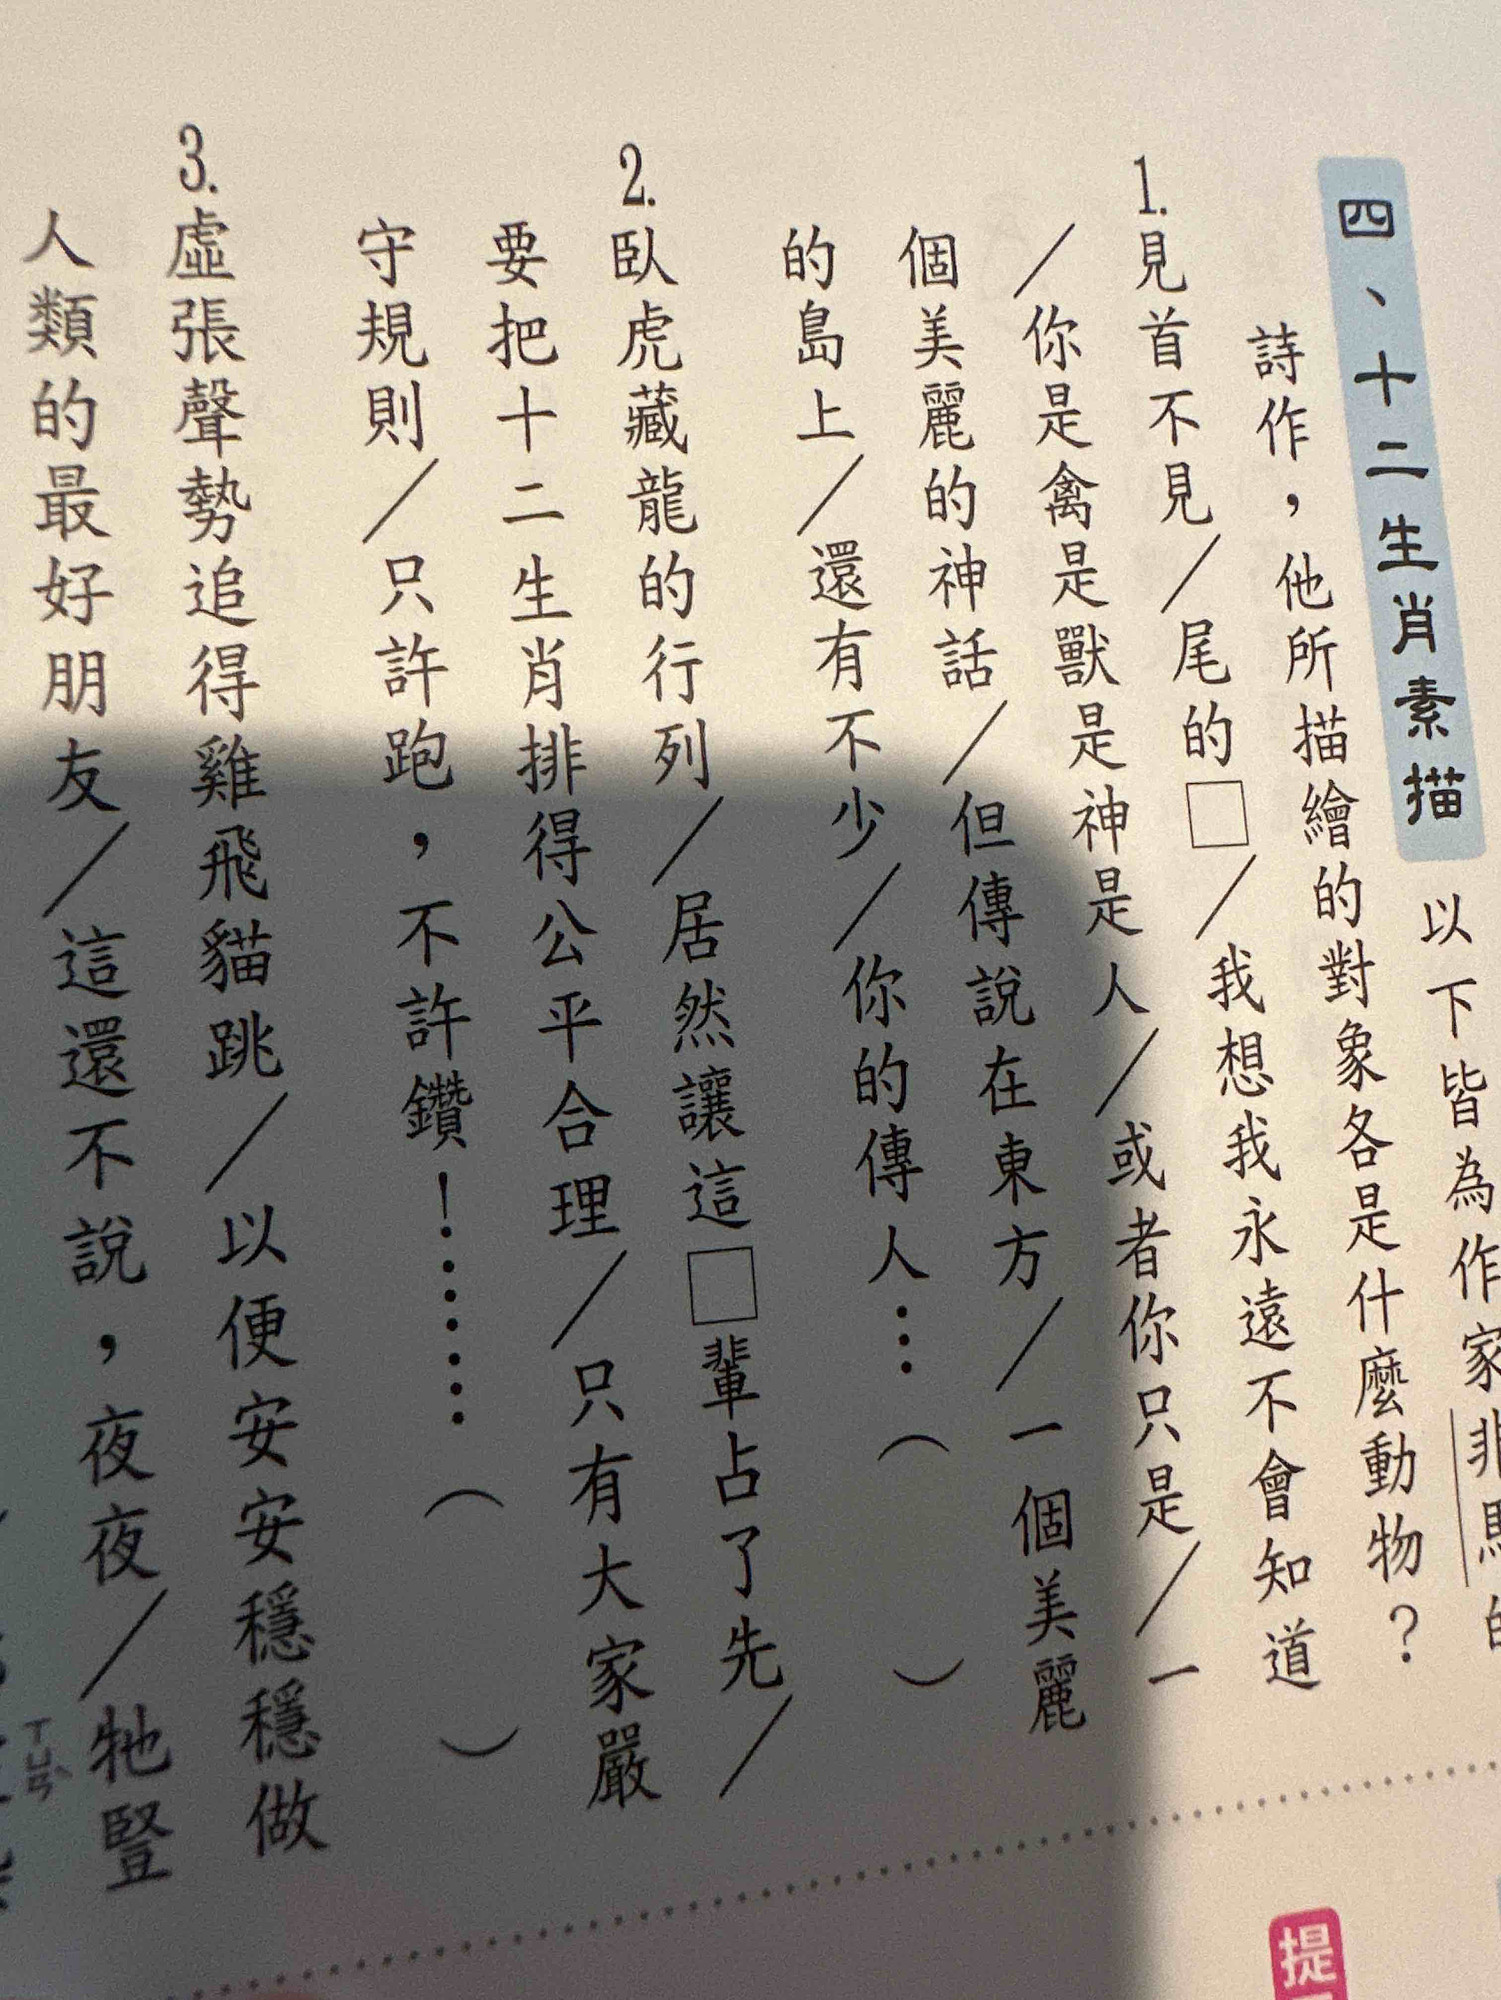 四、十二生肖素描 以下皆為作家非馬的
詩作，他所描繪的對象各是什麼動物？
1.見首不見／尾的□／我想我永遠不會知道
／你是禽是獸是神是人／或者你只是／一
個美麗的神話／但傳說在東方／一個美麗
的島上／還有不少／你的傳人…（　　）
2.臥虎藏龍的行列／居然讓這□輩占了先／
要把十二生肖排得公平合理／只有大家嚴
守規則／只許跑，不許鑽！……（　　）
3.虛張聲勢追得雞飛貓跳／以便安安穩穩做
人類的最好朋友／這還不說，夜夜／牠豎
ㄒㄩㄢˋ
提